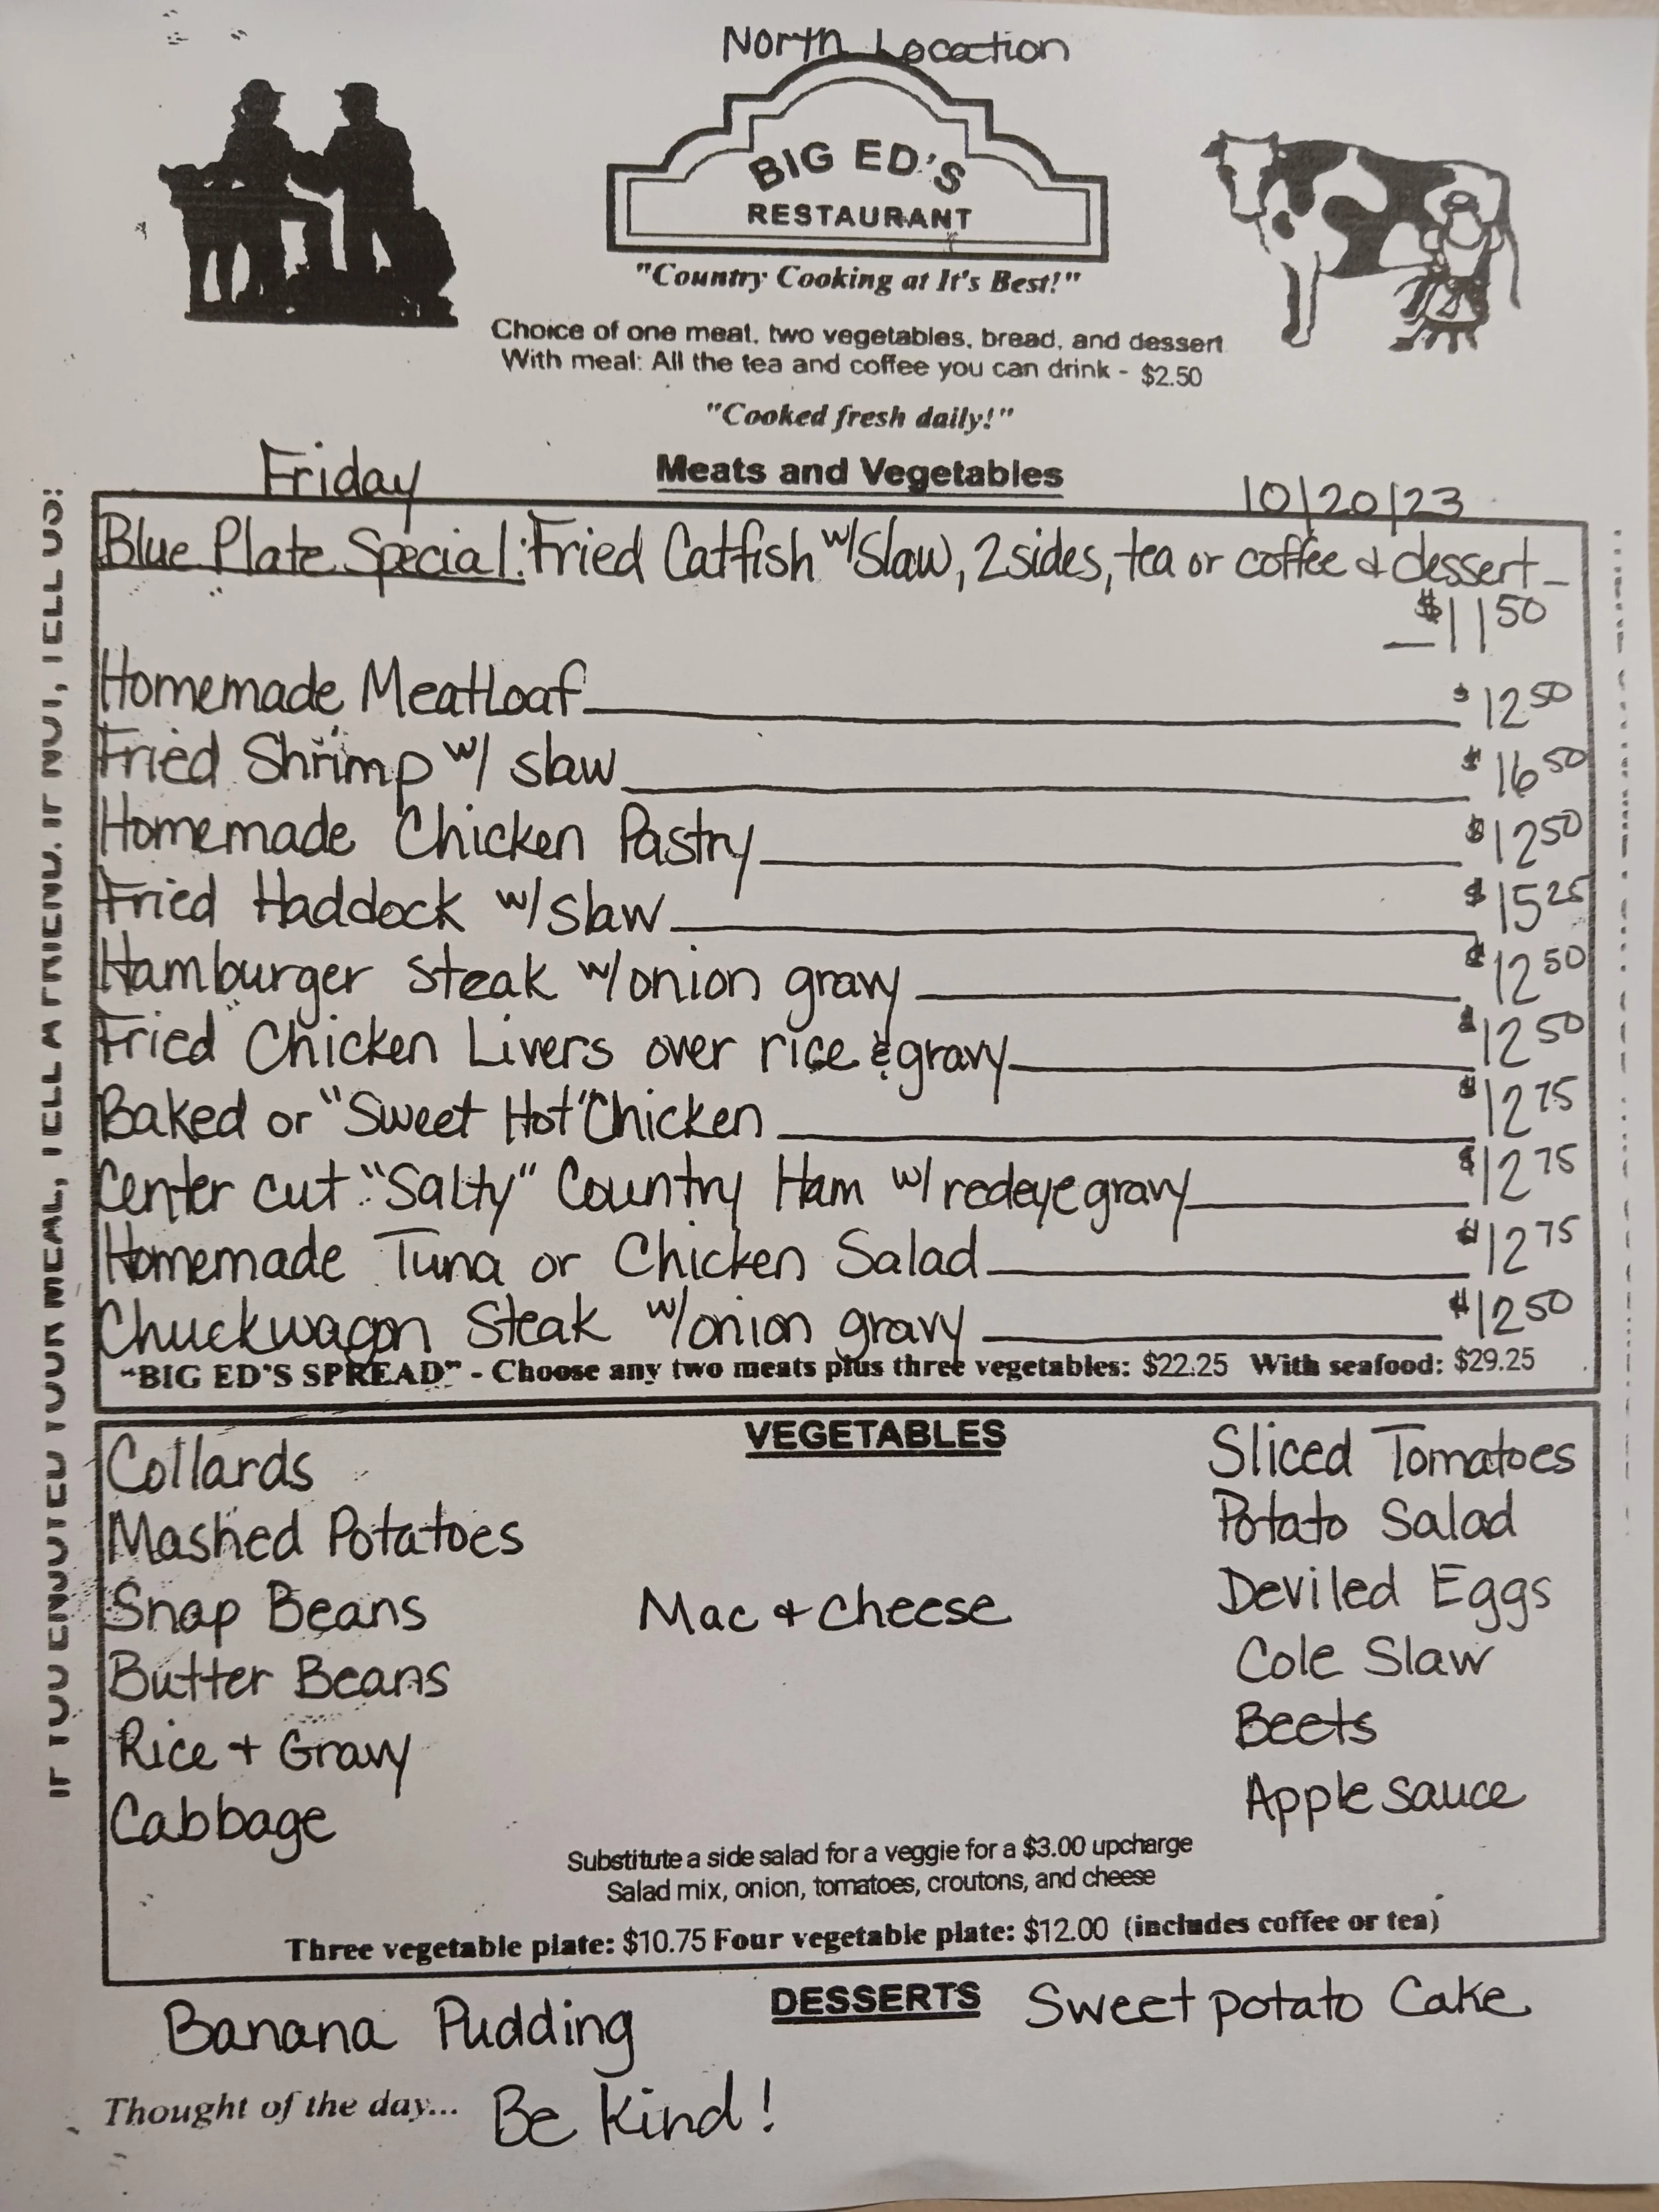 North Location
BIG ED'S
RESTAURANT
"Country Cooking at It's Best!"
Choice of one meat, two vegetables, bread, and dessert
With meal: All the tea and coffee you can drink - $2.50
"Cooked fresh daily!"
Friday
Meats and Vegetables
10/20/23
Blue Plate Special: Fried Catfish w/slaw, 2 sides, tea or coffee & dessert —
— $11 50
Homemade Meatloaf $12 50
Fried Shrimp w/ slaw $16 50
Homemade Chicken Pastry $12 50
Fried Haddock w/ slaw $15 25
Hamburger Steak w/onion gravy $12 50
Fried Chicken Livers over rice & gravy $12 50
Baked or "Sweet Hot" Chicken $12 75
Center cut "Salty" Country Ham w/ redeye gravy $12 75
Homemade Tuna or Chicken Salad $12 75
Chuckwagon Steak w/onion gravy $12 50
"BIG ED'S SPREAD" - Choose any two meats plus three vegetables: $22.25 With seafood: $29.25
VEGETABLES
Collards
Mashed Potatoes
Snap Beans
Butter Beans
Rice + Gravy
Cabbage
Mac & Cheese
Sliced Tomatoes
Potato Salad
Deviled Eggs
Cole Slaw
Beets
Apple sauce
Substitute a side salad for a veggie for a $3.00 upcharge
Salad mix, onion, tomatoes, croutons, and cheese
Three vegetable plate: $10.75 Four vegetable plate: $12.00 (includes coffee or tea)
DESSERTS
Banana Pudding
Sweet potato Cake
Thought of the day... Be Kind!
IF YOU ENJOYED YOUR MEAL, TELL A FRIEND. IF NOT, TELL US!